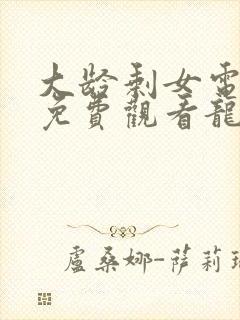 大龄剩女電
免費觀看龍
盧桑娜-薩莉瑞